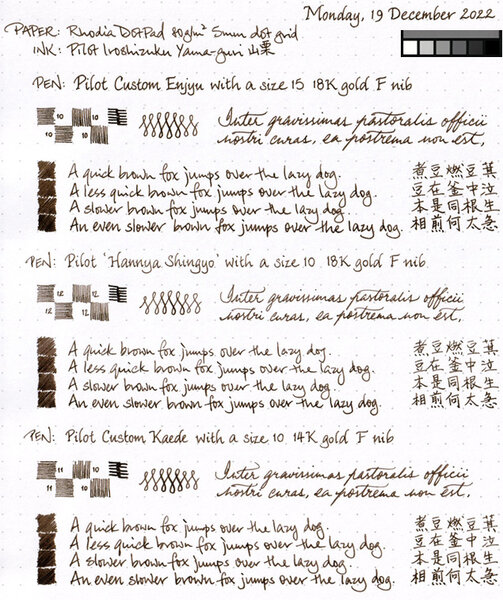 Monday, 19 December 2022
PAPER: Rhodia DotPad 80g/m² 5mm dot grid
INK: Pilot Iroshizuku Yama-guri 山栗
PEN: Pilot Custom Enjyu with a size 15 18K gold F nib
10 10
Inter gravissimas pastoralis officii
nostri curas, ea postrema non est,
A quick brown fox jumps over the lazy dog.
A less quick brown fox jumps over the lazy dog.
A slower brown fox jumps over the lazy dog.
An even slower brown fox jumps over the lazy dog.
煮豆燃豆萁
豆在釜中泣
本是同根生
相煎何太急
PEN: Pilot 'Hannya Shingyo' with a size 10 18K gold F nib
12 12
12 12
Inter gravissimas pastoralis officii
nostri curas, ea postrema non est,
A quick brown fox jumps over the lazy dog.
A less quick brown fox jumps over the lazy dog.
A slower brown fox jumps over the lazy dog.
An even slower brown fox jumps over the lazy dog.
煮豆燃豆萁
豆在釜中泣
本是同根生
相煎何太急
PEN: Pilot Custom Kaede with a size 10 14K gold F nib
11 10
11 10
Inter gravissimas pastoralis officii
nostri curas, ea postrema non est,
A quick brown fox jumps over the lazy dog.
A less quick brown fox jumps over the lazy dog.
A slower brown fox jumps over the lazy dog.
An even slower brown fox jumps over the lazy dog.
煮豆燃豆萁
豆在釜中泣
本是同根生
相煎何太急